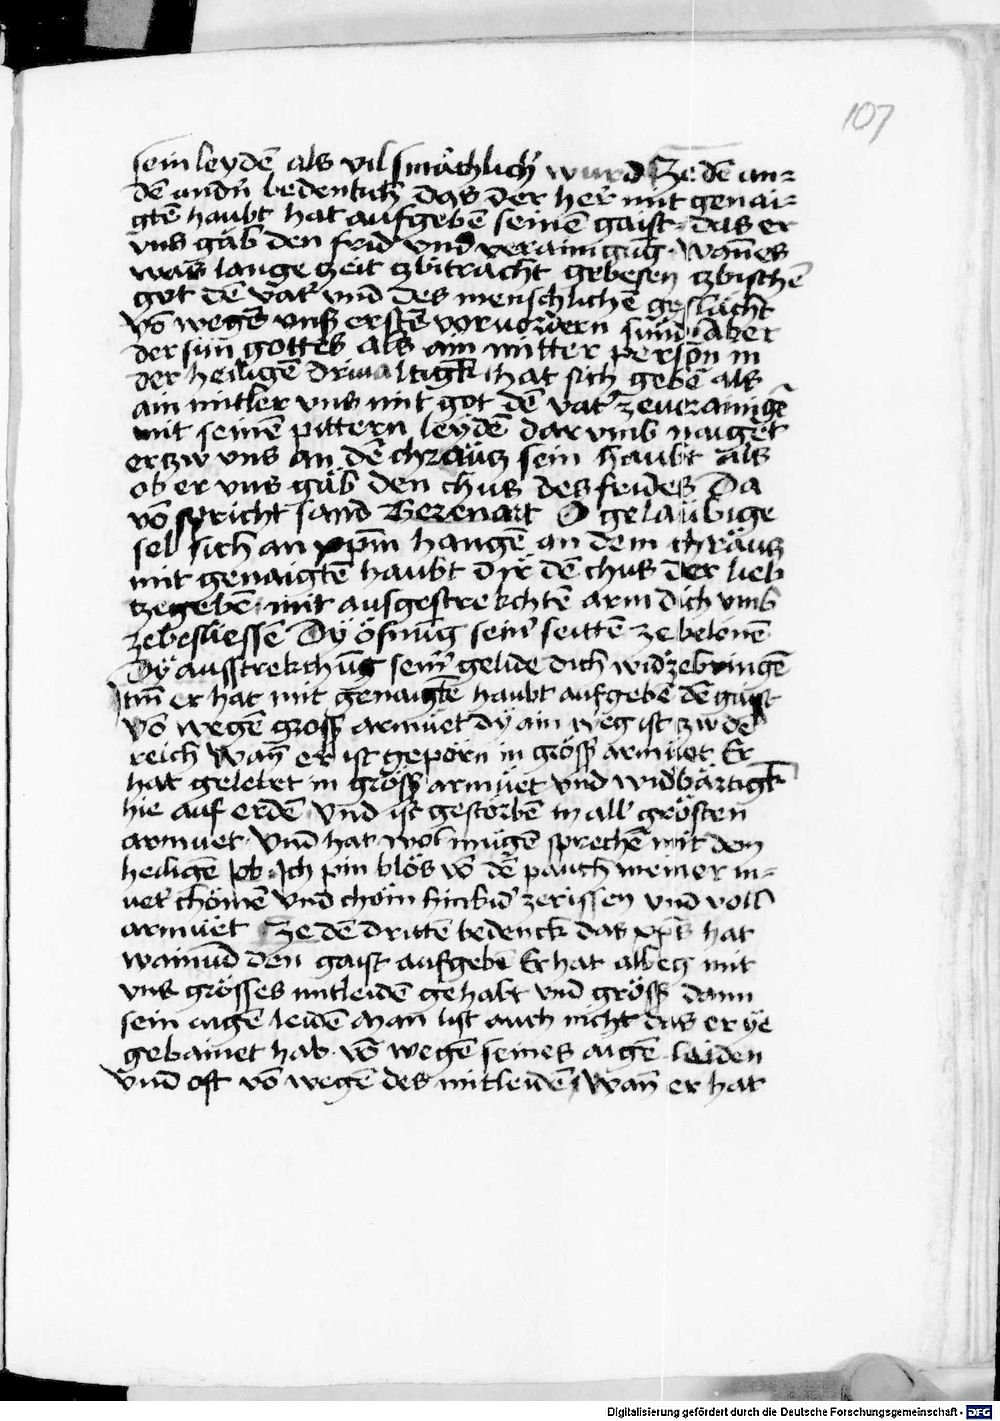 107
sein leydē als vil smächlich' wurd Ze dē an=
dē andn̄ bedentkh das der her mit genai=
gtē haubt hat aufgebē seinē gaist · das er
vns gäb den frid vnd verainigūg · Wan̄ es
was lange zeit zbitracht gebesen zbischē
got dē vat' vnd des menschlichē geslächt
vō wegē vnß erstē voruordern sünd · Aber
der sun gottes als ain mitter person in
der heiligē driualtigk hat sich gebē als
ain mitler vns mit got dē vat' zeuerainigē
mit seinē pittern leydē dar vmb naiget
er zw vns an dē chräutz sein haubt als
ob er vns gäb den chus des frides Da
vō spricht sand Berenart O geläubige
sel sich an xp̄m hangē an dem chräutz
mit genaigtē haubt dir dē chus der lieb
tzegebē · mit ausgestrekchtē arm dich vmb
zebesliessē Dÿ öfnūg sein' seittē ze belonē
Dÿ ausstrekchūg sein' gelide dich wid' zebringē
Itm̄ er hat mit genaigtē haubt aufgebē dē gaist
vō wegē gross armüet dÿ ain weg ist zw dē
reich Wan̄ er ist geporn in gröss' armüet Er
hat gelebet in gröss' armüet vnd widbärtigk
hie auf erdē vnd ist gestorbē in all' grösten
armuet · Vnd hat wol mügen sprechē mit dem
heiligē Job · Ich pin blös vō dē pauch meiner m=
uet' chömē vnd chöm hinwid' zerissen vnd voll
armüet Ze dē drittē bedenck das xp̄s hat
wainūd den gaist aufgebē Er hat albeg mit
vns grösses mitleidē gehabt vnd gröss' dann
sein aigē leidē Man list auch nicht das er ye
gebainet hab · vō wegē seines aigē leiden
Vnd oft vō wegē des mitleidē · Wan̄ er hat
Digitalisierung gefördert durch die Deutsche Forschungsgemeinschaft - DFG